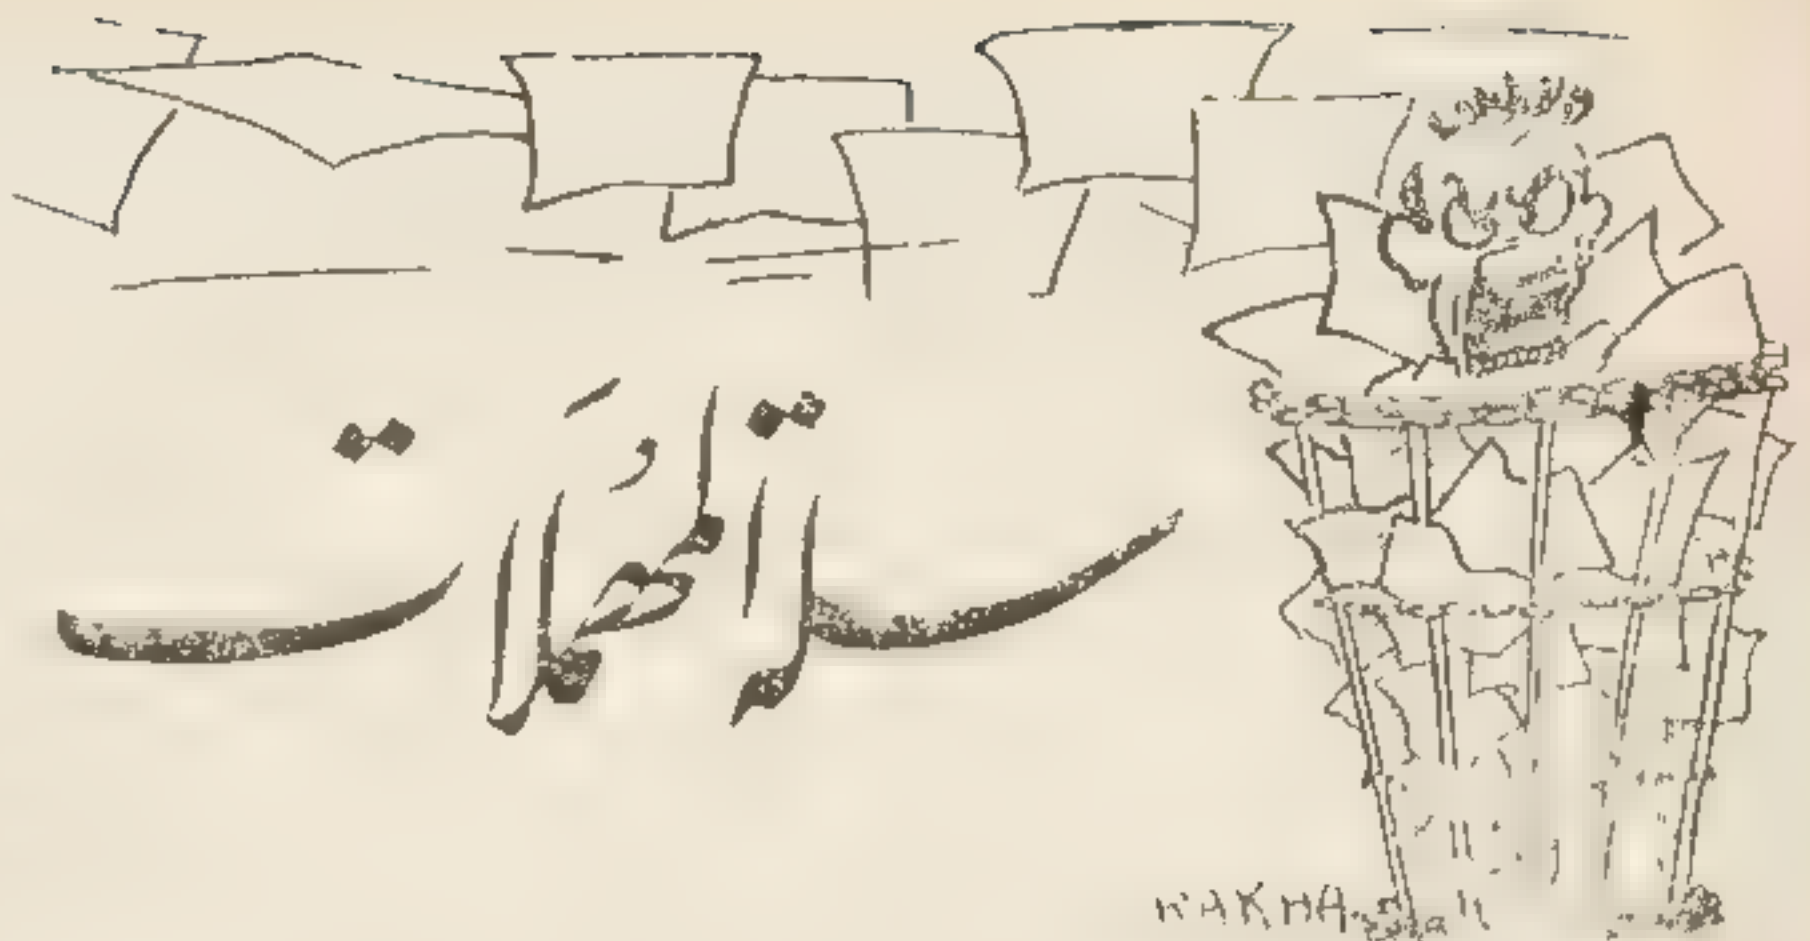 سلة المُهمَلات
RAKHA